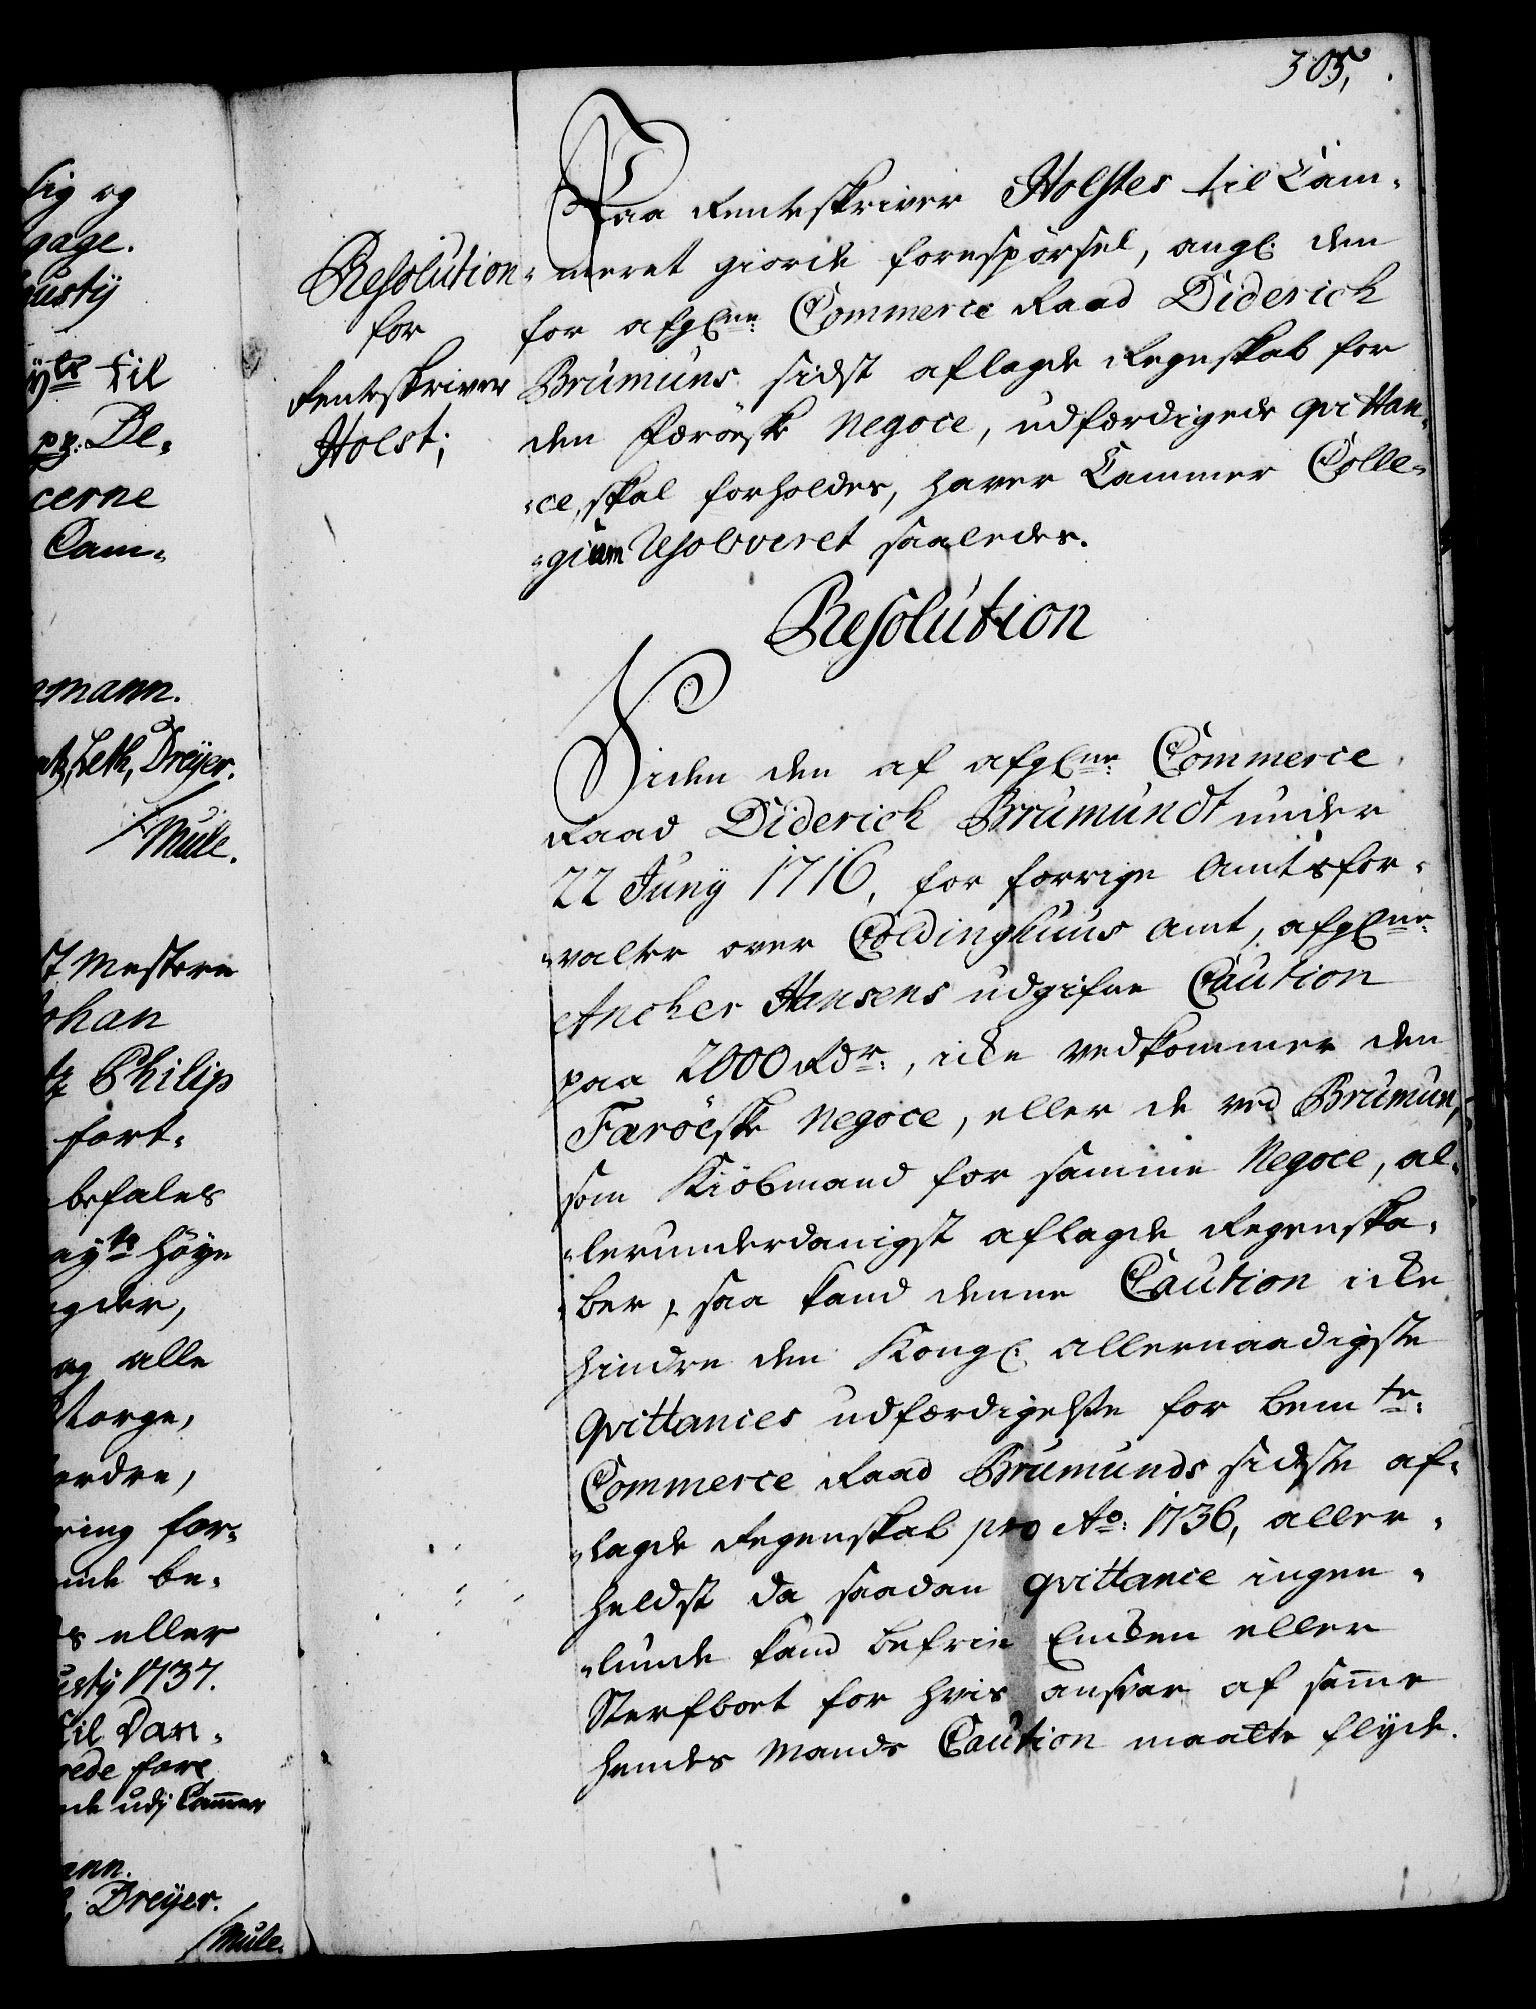 305,
sig og
page.
gusty
yls til
pp: De-
cerne
Cam-
mann.
ntz, Leth, Dreÿer.
/Mule.
st Mestere
ohan
Philip
fort-
befales
ayts höye
gder,
og alle
Norge,
erdre,
ring for-
inde be-
s eller
usty 1737.
til Dan-
rede fore
nde udj Cam̅er
ann.
Dreÿer.
/Mule.
Resolution
for
Renteskriver
Holst;
Paa Renteskriver Holstes til Cam-
-meret giorde forespörsel, angl: den
for afgl:ne Commerce Raad Diderich
Brumuns sidst aflagde Regnskab for
den Færöesk Negoce, udfærdigede qvittan-
-ce, skal forholdes, haver Cammer Colle-
-gium Resolveret saaledes.
Resolution
Siden den af afgl:ne Commerce
Raad Diderich Brumundt under
22 Junÿ 1716, for forrige Amtsfor-
-valter over Coldinghuus Amt, afgl:ne
Ancher Hansens udgifne Caution
paa 2000 Rdr:, icke vedkommer den
Færöeske Negoce, eller de ved Brumun,
som Kiöbmand for samme Negoce, al-
-lerunderdanigst aflagde Regenska-
ber, saa kand denne Caution icke
hindre den Kongl: allernaadigste
Qvittances udfærdigelse for bemte:
Commerce Raad Brumunds sidste af-
-lagde Regenskab pro Ao: 1736, aller-
heldst da saadan qvittance ingen-
-lunde kand befrie Encken eller
Sterfboet for hvis ansvar af sam̅e
hendes Mands Caution maatte flyde.